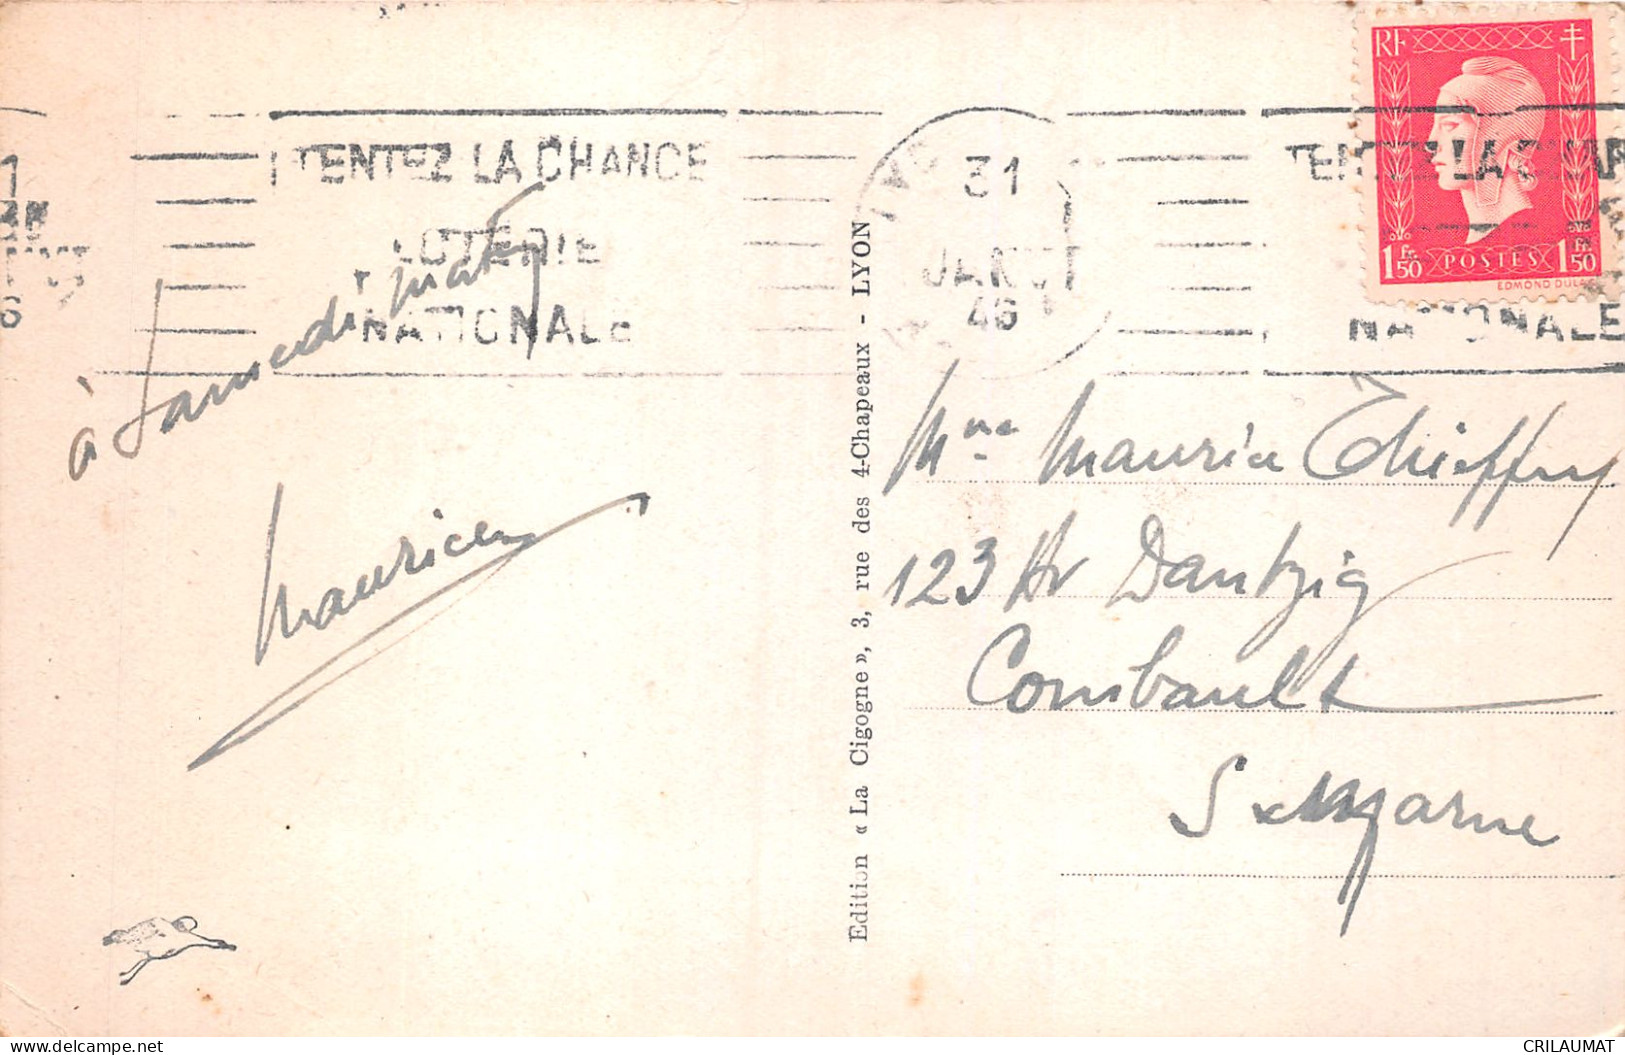 TENTEZ LA CHANCE
LOTERIE
NATIONALE
31
JANVI
46
TENTEZ LA CHAN
NATIONALE
RF
1 Fr. 50 POSTES 1 Fr. 50
EDMOND DULAC
à samedi matin
Maurice
Edition « La Cigogne », 3, rue des 4-Chapeaux - LYON
Mme Maurice Thieffry
123 Av Dantzig
Combault
S et Marne
CRILAUMAT